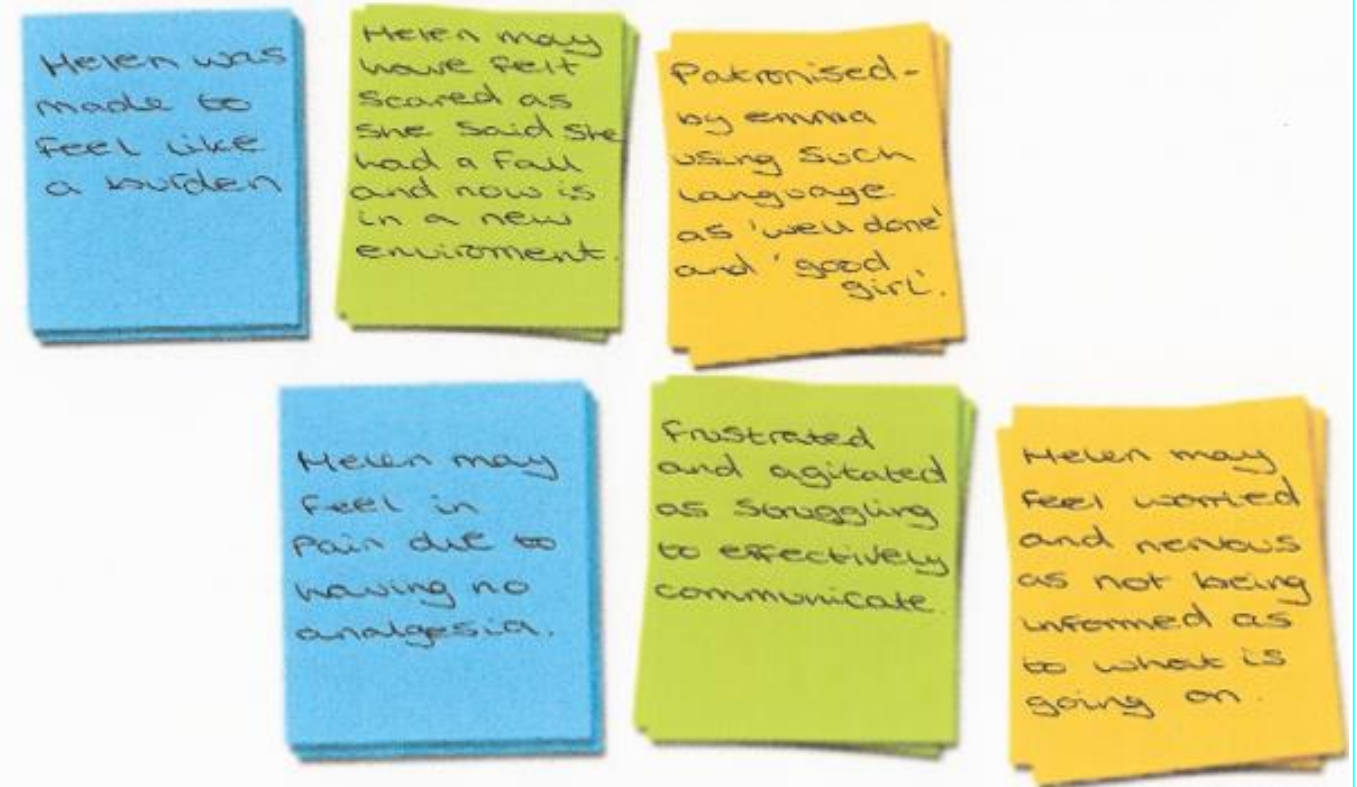 Helen was
made to
feel like
a burden
Helen may
have felt
scared as
she said she
had a fall
and now is
in a new
enviroment.
Patronised -
by emma
using such
language
as 'well done'
and 'good
girl'.
Helen may
feel in
pain due to
having no
analgesia.
frustrated
and agitated
as struggling
to effectively
communicate.
Helen may
feel worried
and nervous
as not being
informed as
to what is
going on.